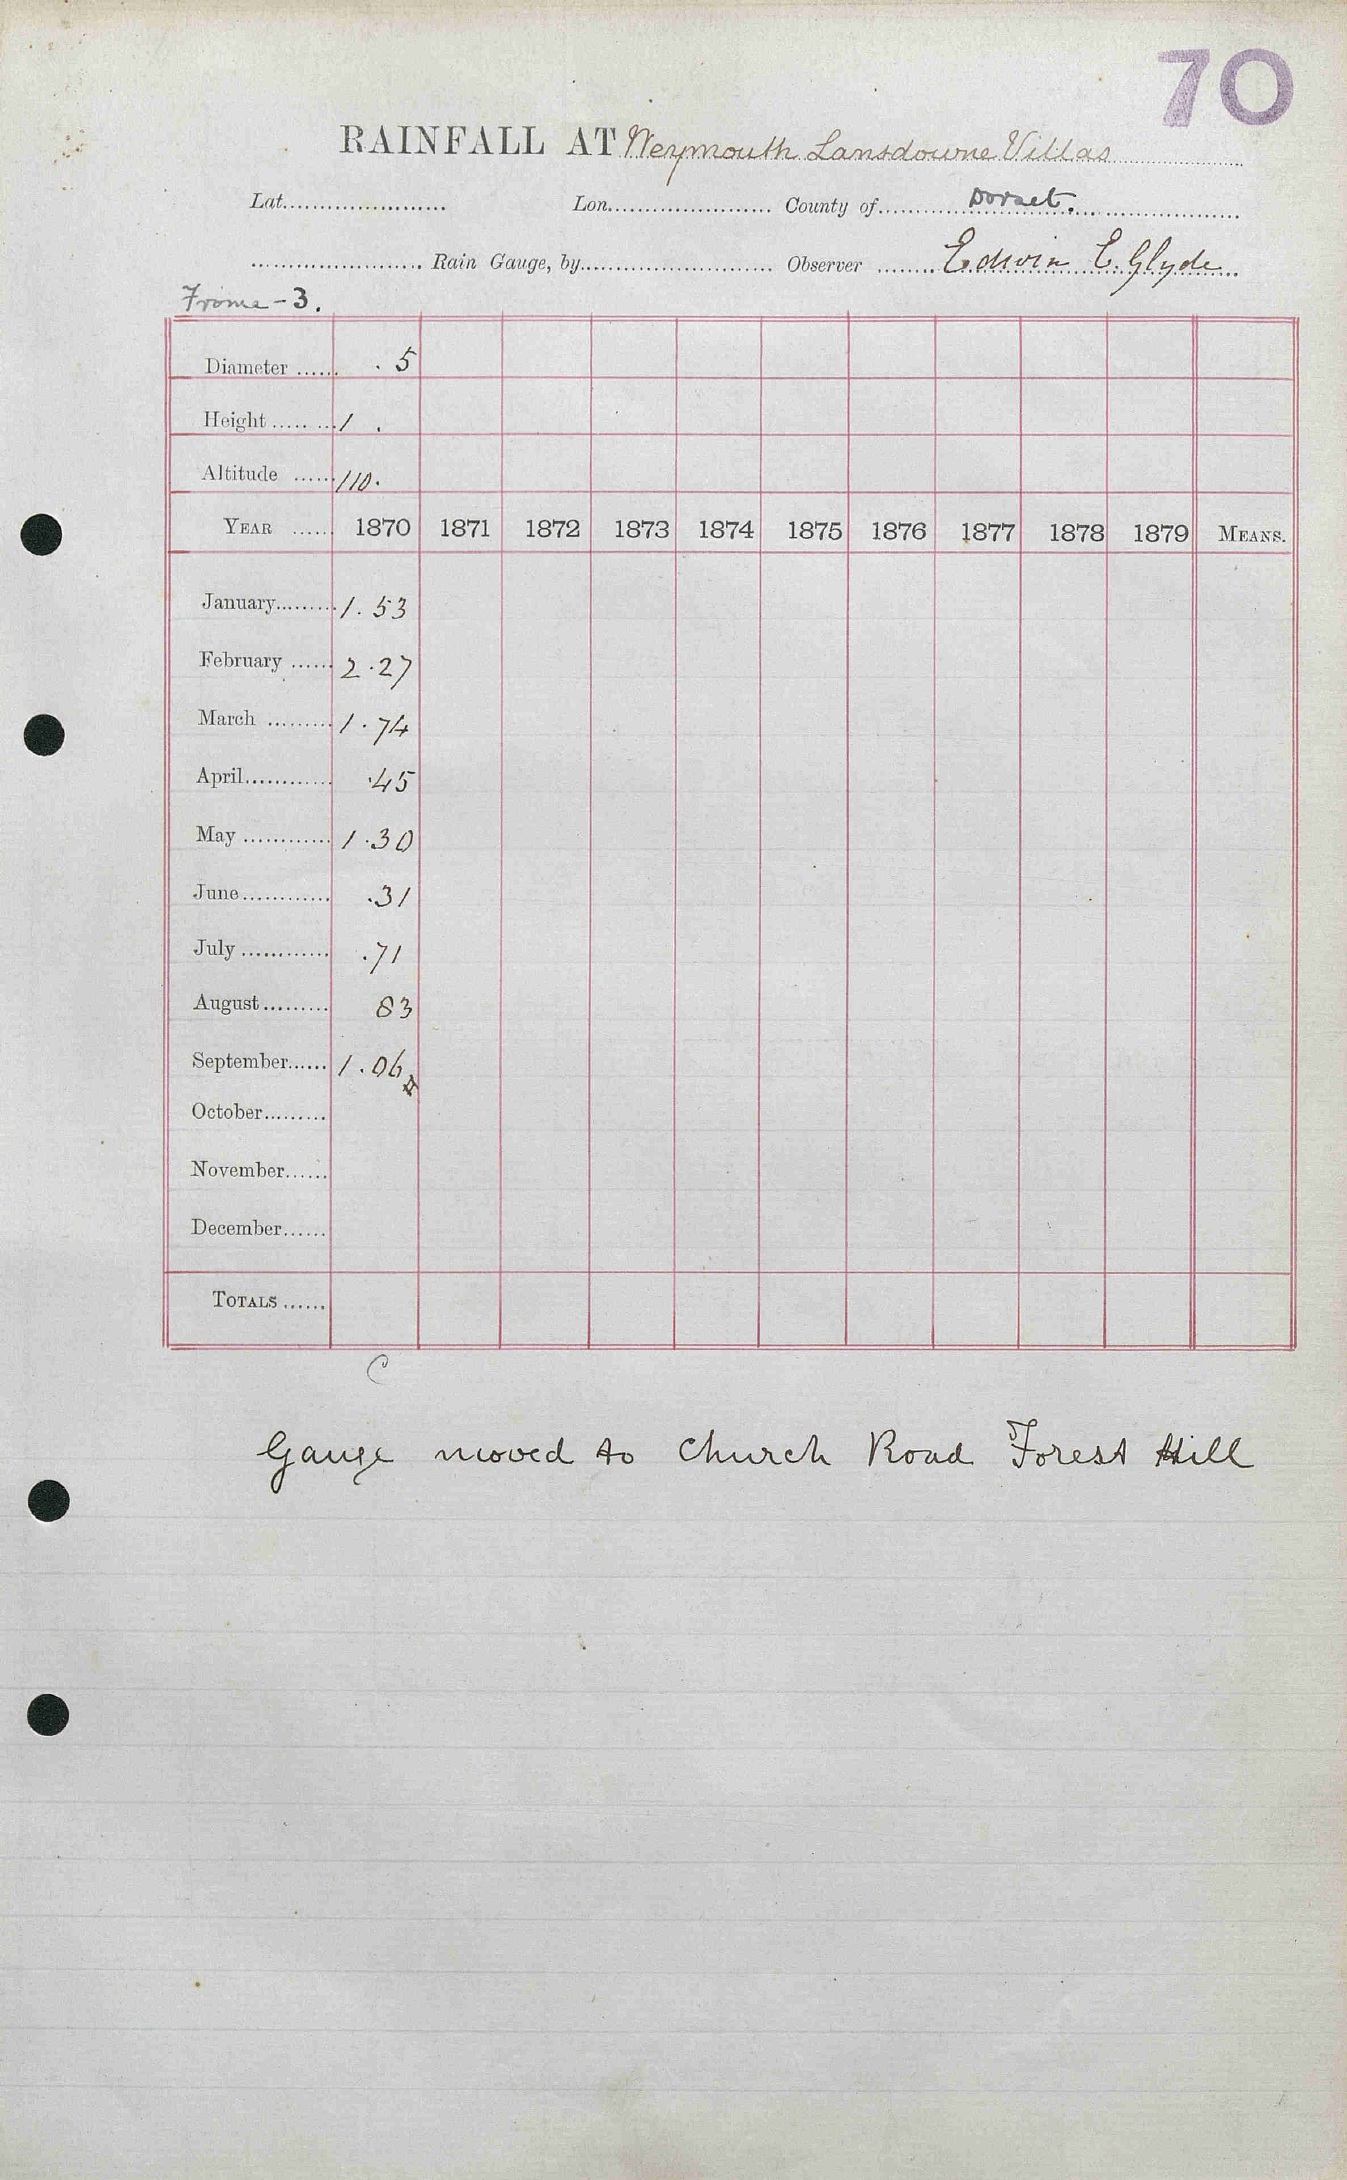 70
RAINFALL AT Weymouth Lansdowne Villas
Lat. Lon. County of Dorset.
Rain Gauge, by Observer Edwin E. Glyde
Frome - 3.
Diameter . 5
Height 1 .
Altitude 110.
YEAR 1870 1871 1872 1873 1874 1875 1876 1877 1878 1879 MEANS.
January 1.53
February 2.27
March 1.74
April .45
May 1.30
June .31
July .71
August 83
September 1.06
October
November
December
TOTALS
C
Gauge moved to Church Road Forest Hill